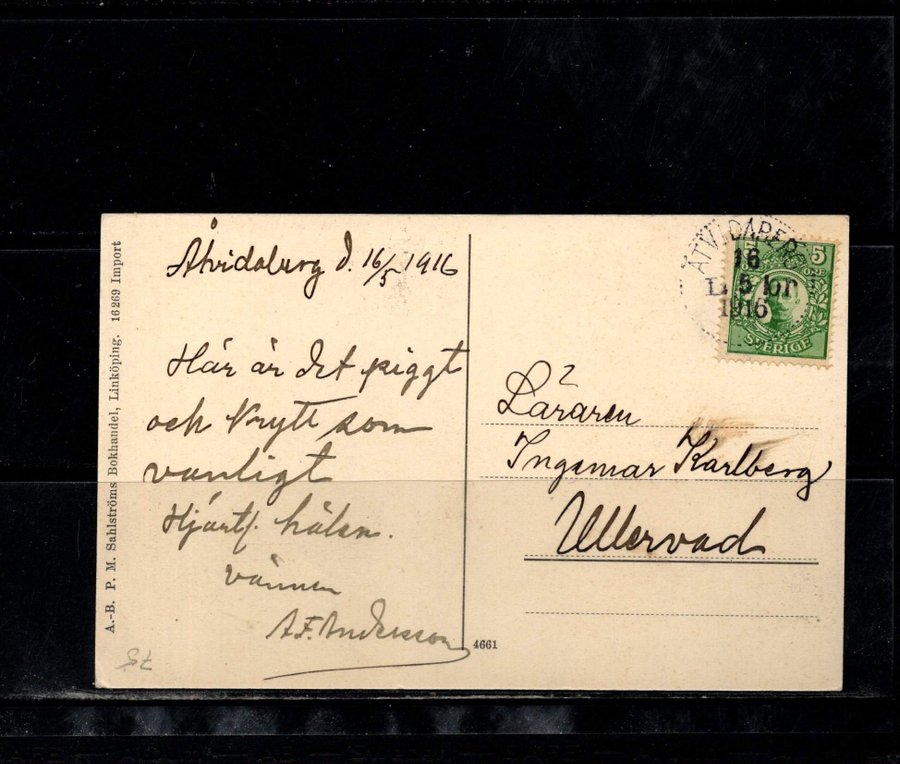 Åtvidaberg d. 16/5 1916
Här är det piggt
och krytt som
vanligt
Hjärtl. hälsn.
vännen
A.F. Andersson
A.-B. P. M. Sahlströms Bokhandel, Linköping. 16269 Import
4661
ÅTVIDABERG
16
5
1916
5
ÖRE
SVERIGE
Läraren
Ingemar Karlberg
Ullervad